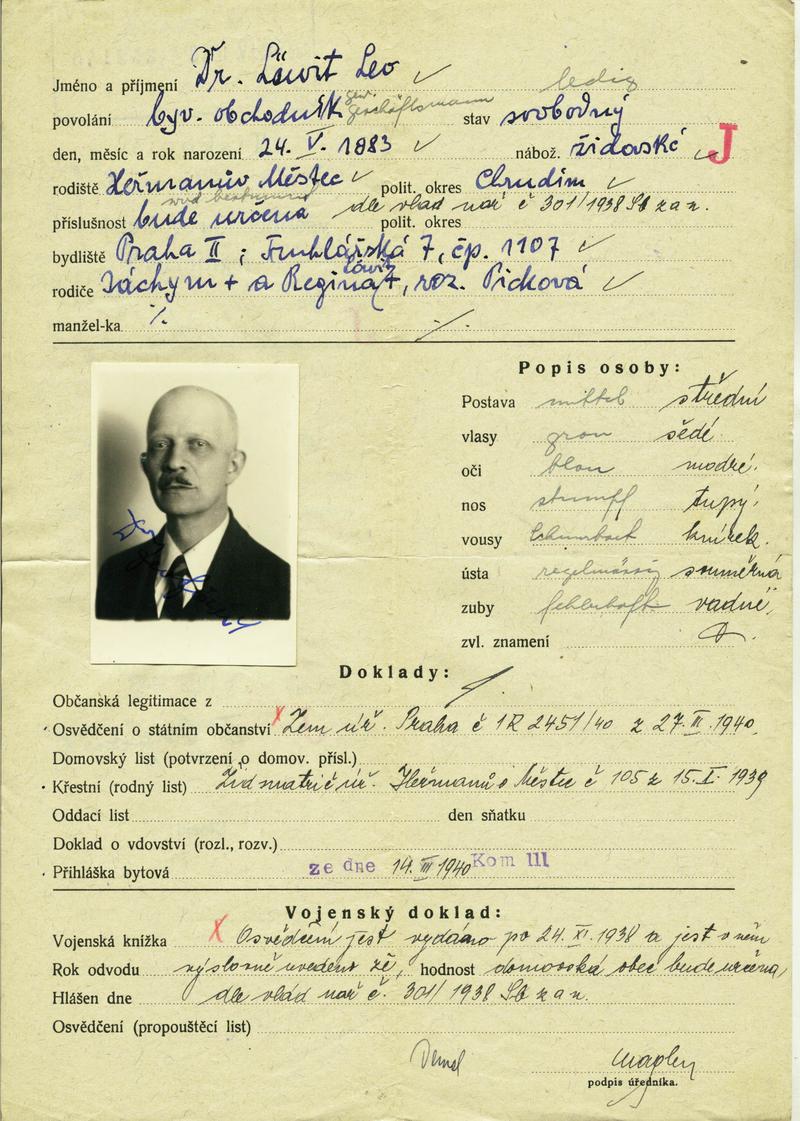 Jméno a příjmení Dr. Löwit Leo
ledig
povolání býv. obchodník gew. Geschäftsmann stav svobodný
den, měsíc a rok narození 24. V. 1883 nábož. židovské J
rodiště Heřmanův Městec polit. okres Chrudim
wird bestimmt
příslušnost bude určena dle vlád nař č 301/1938 Sb z a n. polit. okres
bydliště Praha II ; Truhlářská 7, čp. 1107
Löwit
rodiče Jáchym + a Regina, roz. Picková
manžel-ka ./. ./.
Popis osoby:
Postava mittel střední
vlasy grau šedé
oči blau modré.
nos stumpf tupý.
vousy Schnurbart knírek.
ústa regelmässig souměrná
zuby fehlerhaft vadné,
zvl. znamení
Doklady:
Občanská legitimace z
Osvědčení o státním občanství x Zem úř. Praha č 1R 2451/40 z 27. III. 1940.
Domovský list (potvrzení o domov. přísl.)
Křestní (rodný list) Žid matrič úř. Heřmanův Městec č 105 z 15. I. 1939
Oddací list den sňatku
Doklad o vdovství (rozl., rozv.)
Přihláška bytová ze dne 14. III 1940 Kom III
Vojenský doklad:
Vojenská knížka x Osvědčení jest vydáno po 24. XI. 1938 a jest v něm
Rok odvodu výslovně uvedeno že, hodnost domovská obec bude určena,
Hlášen dne dle vlád nař č. 301/1938 Sb z a n.
Osvědčení (propouštěcí list)
podpis úředníka.